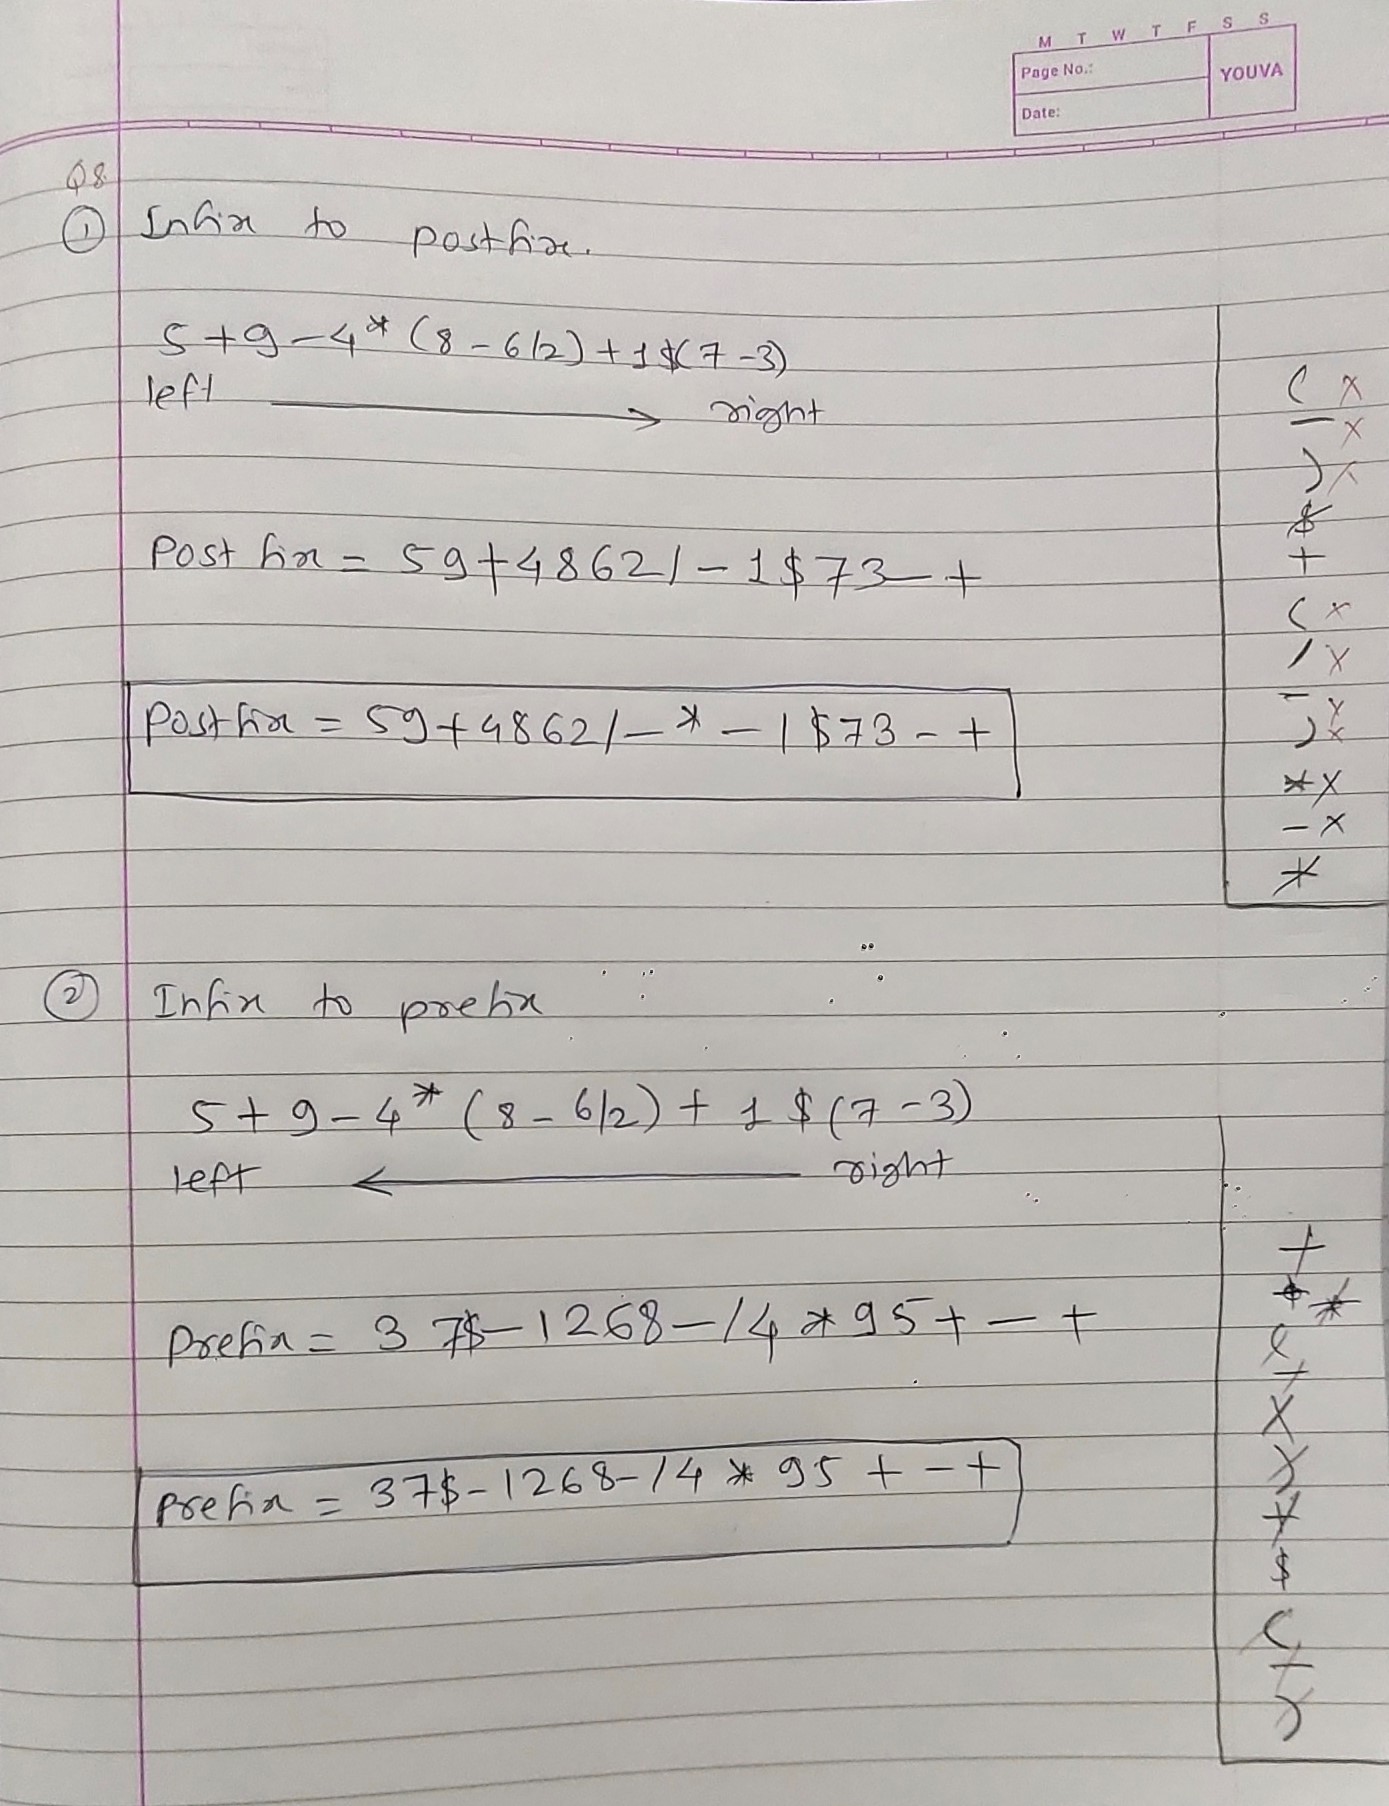 M T W T F S S
Page No.:
YOUVA
Date:
Q8.
① Infix to postfix.
5 + 9 - 4 * (8 - 6/2) + 1 $ (7 - 3)
left → right
Postfix = 59+4862/-1$73-+
Postfix = 59+4862/-*-1$73-+
( x
- x
) x
$
+
( x
/ x
- x
) x
* x
- x
*
② Infix to prefix
5 + 9 - 4 * (8 - 6/2) + 1 $ (7 - 3)
left ← right
Prefix = 3 7$-1268-/4*95+-+
Prefix = 37$-1268-/4*95+-+
+
*
$